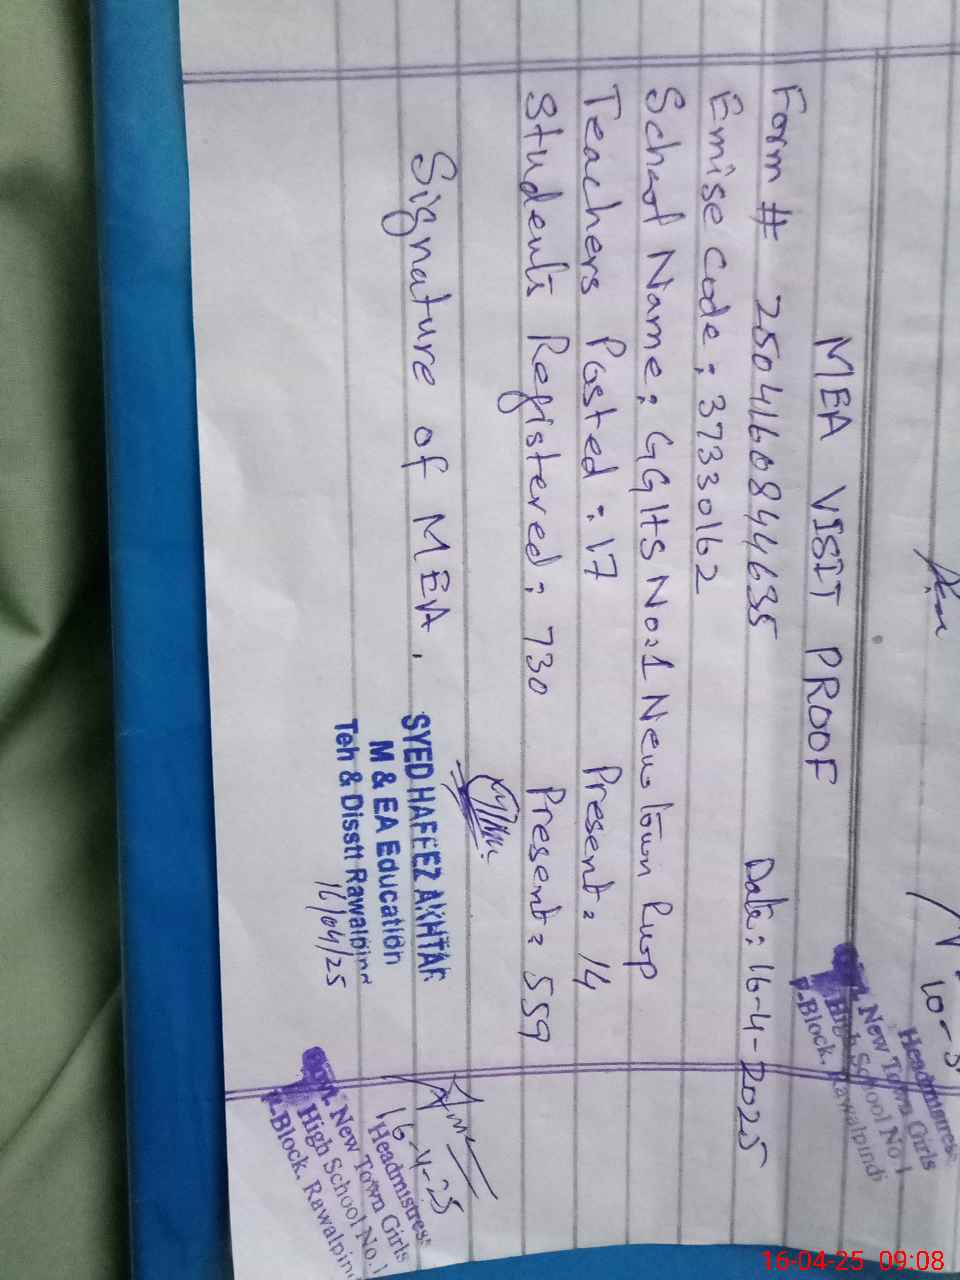 MEA VISIT PROOF
Form # 2504160844635 Date: 16-4-2025
Emise Code: 37330162
School Name: GGHS No:1 New town Rwp
Teachers Posted: 17 Present: 14
Students Registered: 730 Present: 559
Signature of MEA,
SYED HAFEEZ AKHTAR
M & EA Education
Teh & Disstt Rawalpin
16/04/25
16-4-25
Headmistress
New Town Girls
High School No.1
-Block, Rawalpin
10-
Headmistress
New Town Girls
High School No 1
-Block, Rawalpindi
16-04-25 09:08